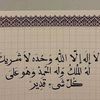 لا إله إلا الله وحده لا شريك
له له الملك وله الحمد وهو على
كل شيء قدير